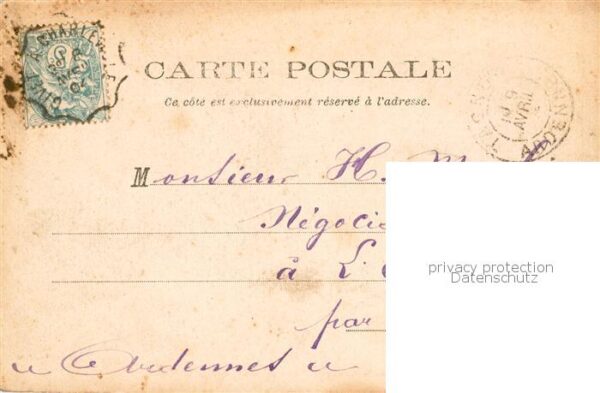 CARTE POSTALE
Ce côté est exclusivement réservé à l'adresse.
Monsieur H. M
Négocie
à L'
par
Ardennes
privacy protection
Datenschutz